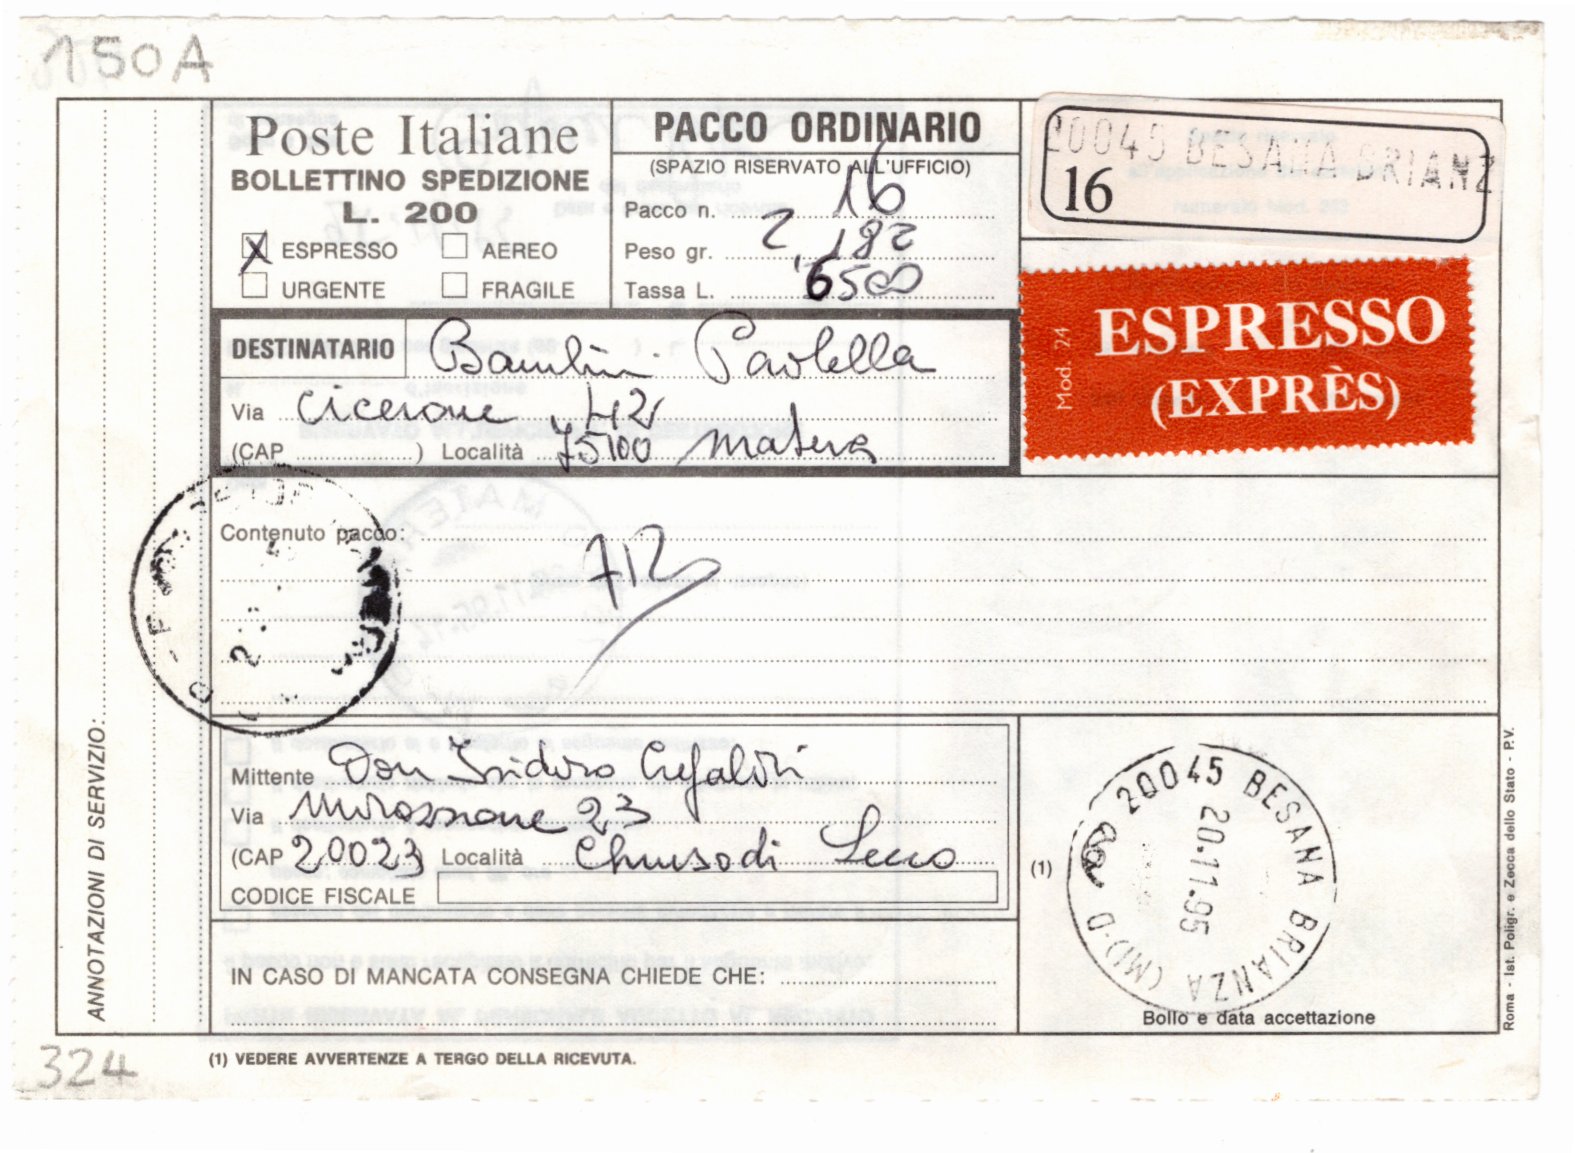 150A
Poste Italiane
BOLLETTINO SPEDIZIONE
L. 200
X ESPRESSO AEREO
URGENTE FRAGILE
PACCO ORDINARIO
(SPAZIO RISERVATO ALL'UFFICIO)
Pacco n. 16
Peso gr. 2,182
Tassa L. 6500
20045 BESANA BRIANZ
16
Mod. 24
ESPRESSO
(EXPRÈS)
DESTINATARIO
Via Cicerone 42
(CAP ) Località 75100 Matera
Contenuto pacco:
ANNOTAZIONI DI SERVIZIO:
Mittente Don Isidoro
Via 23
(CAP 20023 Località Lecco
CODICE FISCALE
IN CASO DI MANCATA CONSEGNA CHIEDE CHE:
(1)
20045 BESANA BRIANZA (MI)-D
20.11.95
Bollo e data accettazione
Roma - Ist. Poligr. e Zecca dello Stato - P.V.
324
(1) VEDERE AVVERTENZE A TERGO DELLA RICEVUTA.